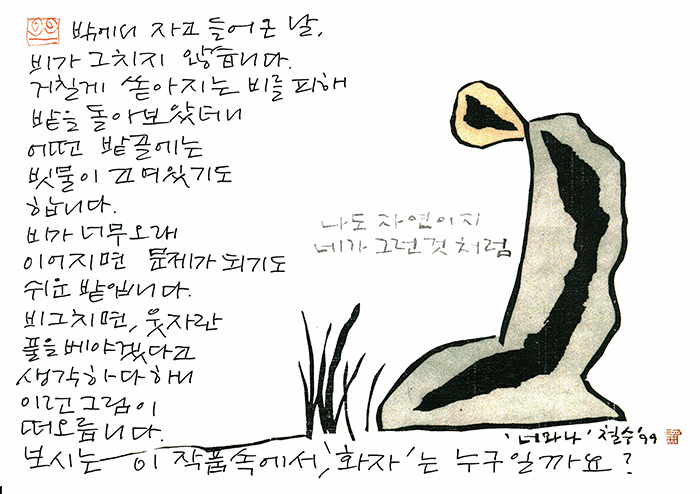 밖에서 자고 들어온 날,
비가 그치지 않습니다.
거칠게 쏟아지는 비를 피해
밭을 돌아보았더니
어떤 밭골에는
빗물이 고여있기도
합니다.
비가 너무 오래
이어지면 문제가 되기도
쉬운 밭입니다.
비그치면, 웃자란
풀을 베야겠다고
생각하다하니
이런 그림이
떠오릅니다.
보시는 이 작품속에서, '화자'는 누구일까요?
나도 자연이지
네가 그런것 처럼
'너와나' 철수 '94